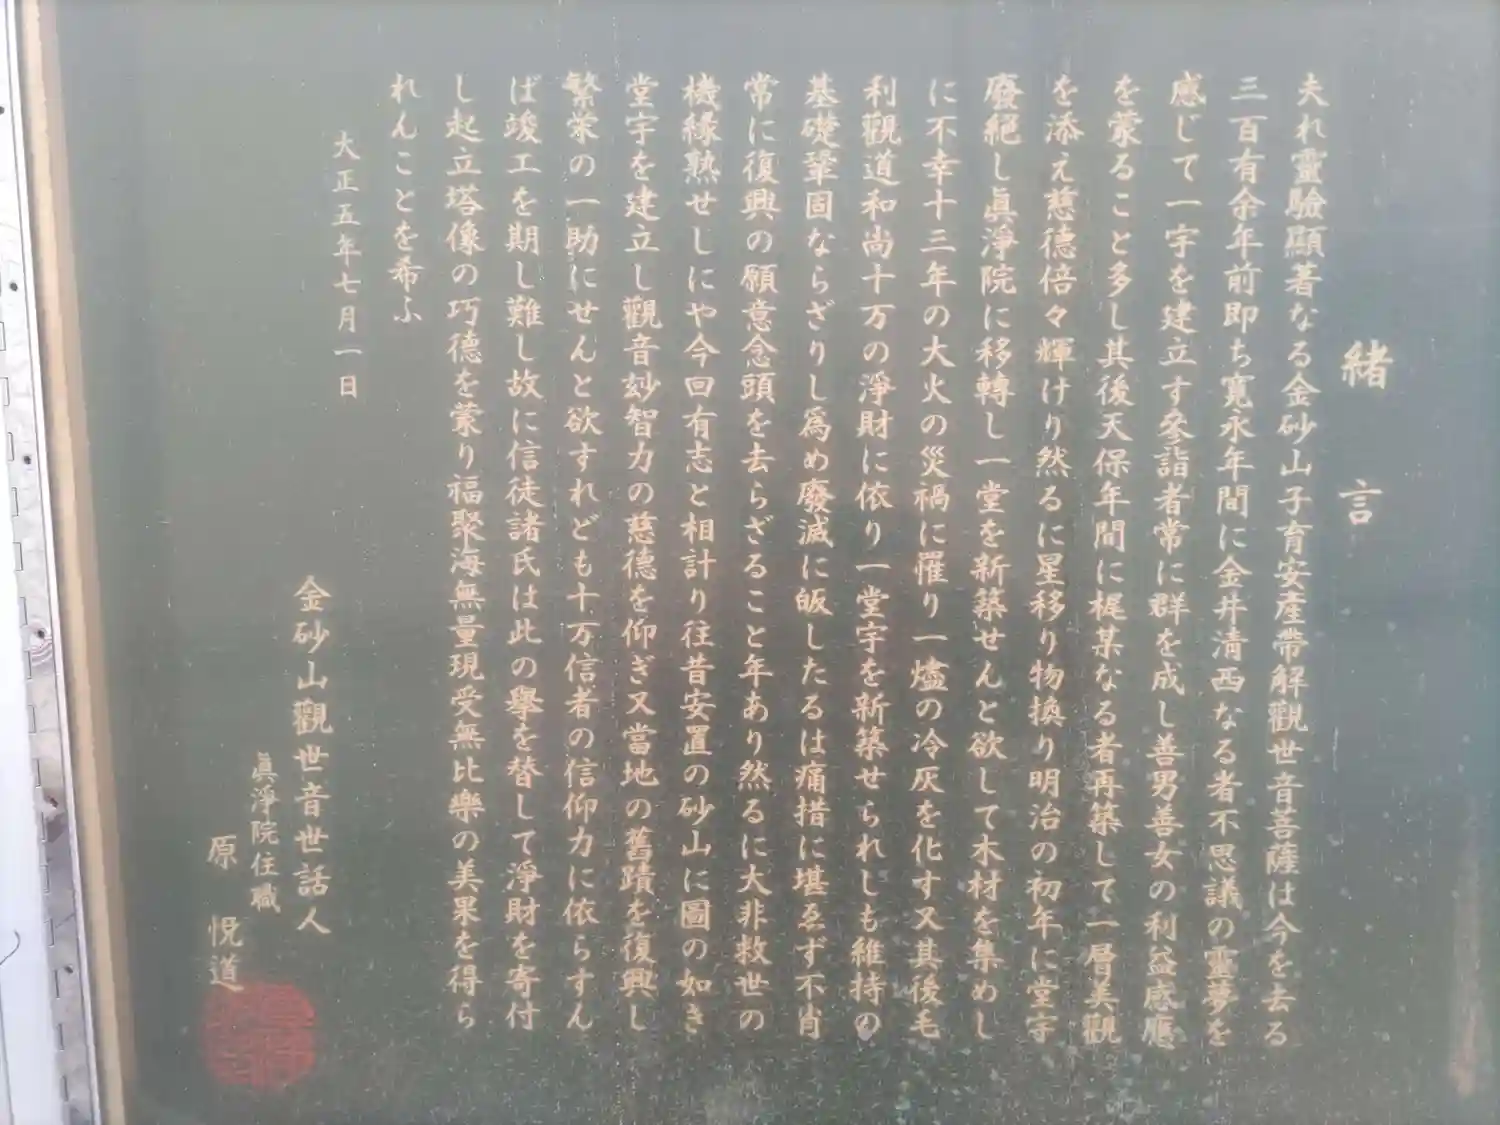 緒言
夫れ靈驗顯著なる金砂山子育安產帶解觀世音菩薩は今を去る
三百有余年前即ち寛永年間に金井淸西なる者不思議の靈夢を
感じて一宇を建立す參詣者常に群を成し善男善女の利益感應
を蒙ること多し其後天保年間に梶某なる者再築して一層美觀
を添え慈德倍々輝けり然るに星移り物換り明治の初年に堂宇
廢絕し眞淨院に移轉し一堂を新築せんと欲して木材を集めし
に不幸十三年の大火の災禍に罹り一燼の冷灰を化す又其後毛
利觀道和尚十万の淨財に依り一堂宇を新築せられしも維持の
基礎鞏固ならざりし爲め廢滅に皈したるは痛措に堪ゑず不肖
常に復興の願意念頭を去らざること年あり然るに大非救世の
機緣熟せしにや今回有志と相計り往昔安置の砂山に圖の如き
堂宇を建立し觀音玅智力の慈德を仰ぎ又當地の舊蹟を復興し
繁栄の一助にせんと欲すれども十万信者の信仰力に依らすん
ば竣工を期し難し故に信徒諸氏は此の擧を替して淨財を寄付
し起立塔像の巧德を蒙り福聚海無量現受無比樂の美果を得ら
れんことを希ふ
大正五年七月一日
金砂山觀世音世話人
眞淨院住職
原悅道